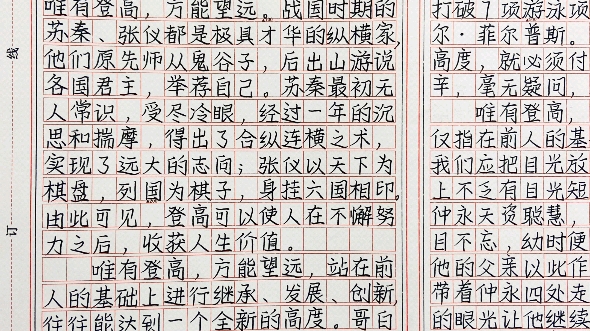 唯有登高，方能望远。战国时期的
苏秦、张仪都是极具才华的纵横家，
他们原先师从鬼谷子，后出山游说
各国君主，举荐自己。苏秦最初无
人常识，受尽冷眼，经过一年的沉
思和揣摩，得出了合纵连横之术，
实现了远大的志向；张仪以天下为
棋盘，列国为棋子，身挂六国相印。
由此可见，登高可以使人在不懈努
力之后，收获人生价值。
唯有登高，方能望远，站在前
人的基础上进行继承、发展、创新，
往往能达到一个全新的高度。哥白
打破7项游泳项
尔·菲尔普斯。
高度，就必须付
辛，毫无疑问，
唯有登高，
仅指在前人的基
我们应把目光放
上不乏有目光短
仲永天资聪慧，
目不忘，幼时便
他的父亲以此作
带着仲永四处走
的眼光让他继续
线
订